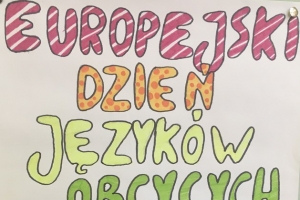 EUROPEJSKI
DZIEŃ
JĘZYKÓW
OBCYCYCH